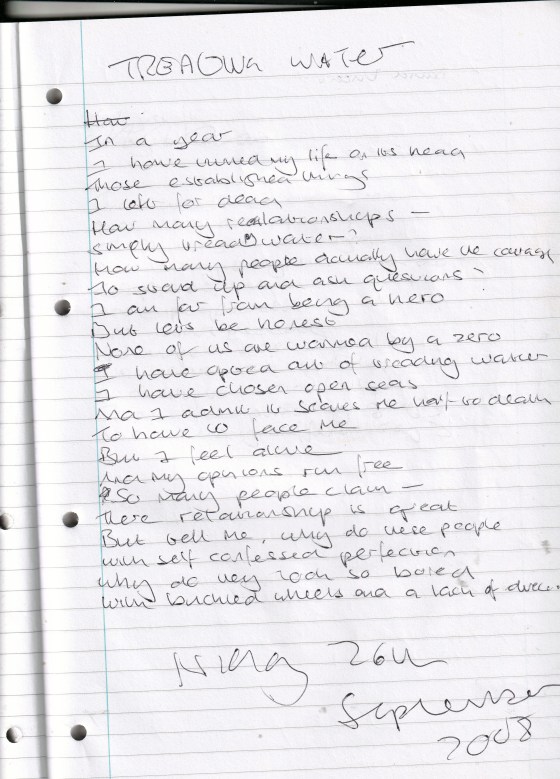 TREADING WATER
How
In a year
I have turned my life on its head
Those established things
I left for dead
How many realationships —
simply tread water?
How many people actually have the courage
To stand up and ask questions?
I am far from being a hero
But lets be honest
None of us are warmed by a zero
I have opted out of treading water
I have chosen open seas
And I admit it scares me half-to death
To have to face me
But I feel alive
And my opinions run free
So many people claim —
There relationship is great
But tell me, why do these people
with self confessed perfection
why do they look so bored
with buckled wheels and a lack of
26th
September
2008